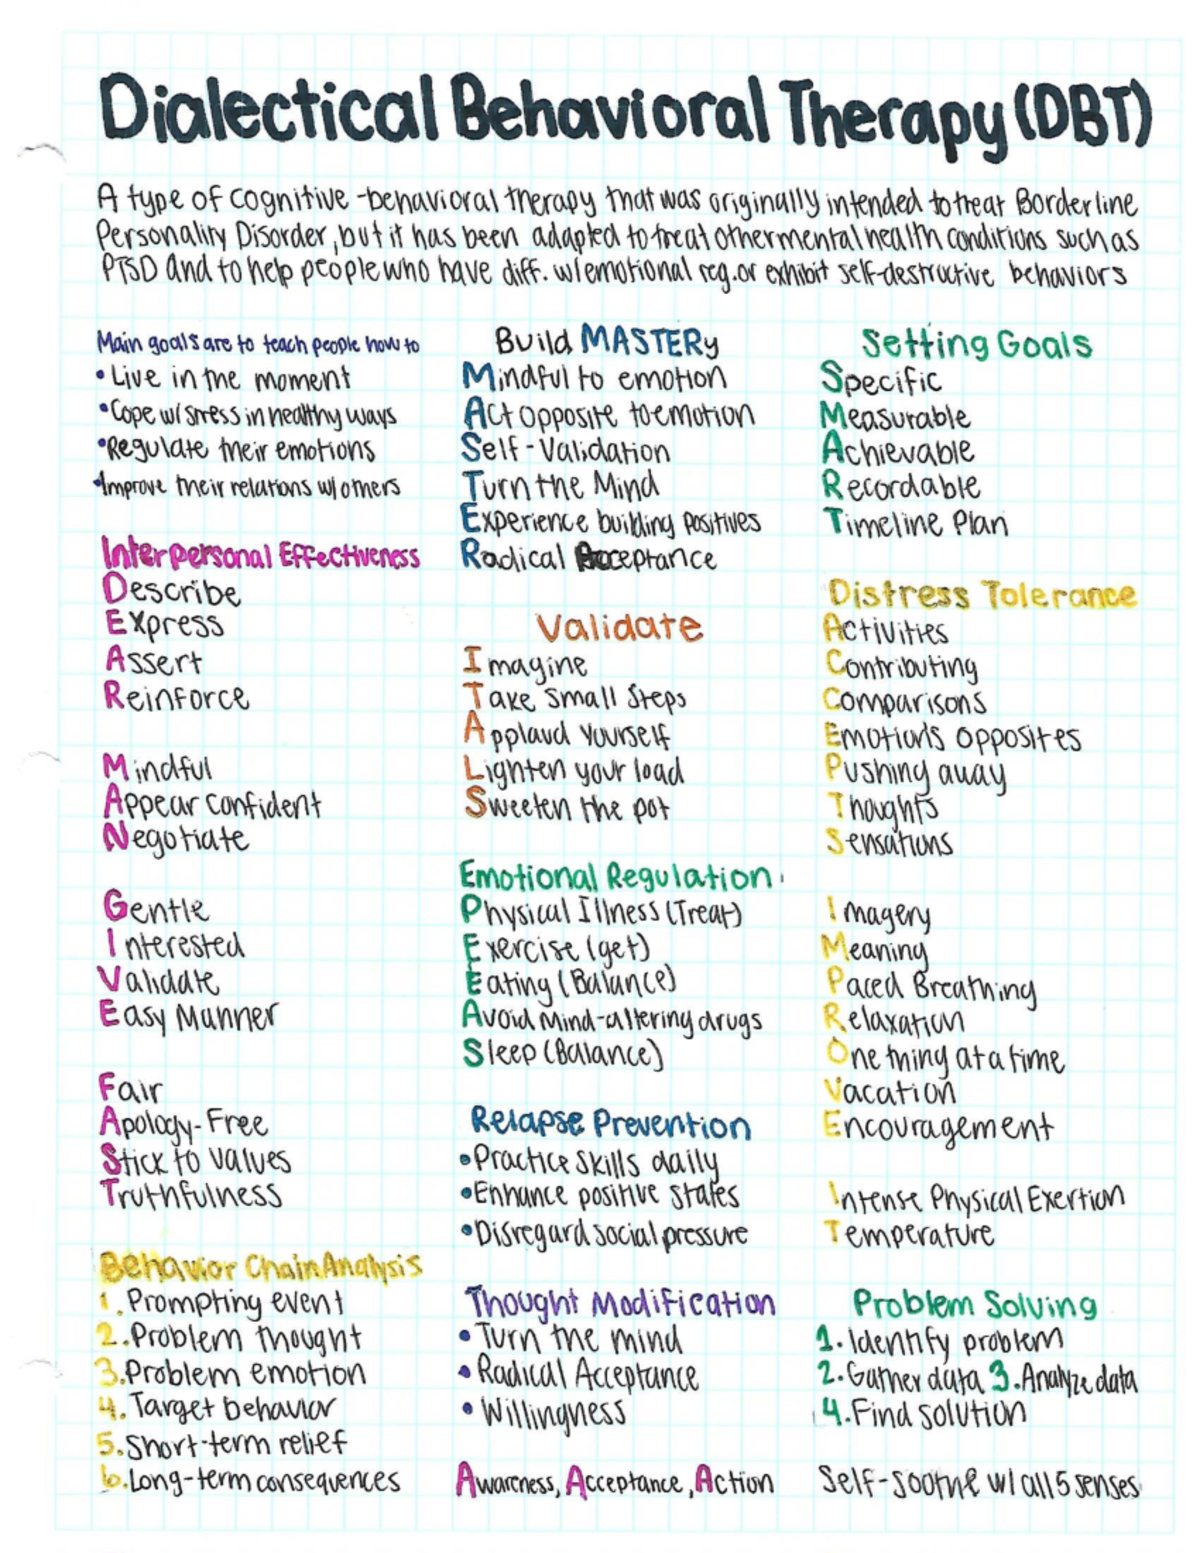 Dialectical Behavioral Therapy (DBT)
A type of cognitive-behavioral therapy that was originally intended to treat Borderline
Personality Disorder, but it has been adapted to treat other mental health conditions such as
PTSD and to help people who have diff. w/emotional reg. or exhibit self-destructive behaviors
Main goals are to teach people how to
• Live in the moment
• Cope w/ stress in healthy ways
• Regulate their emotions
• Improve their relations w/ others
Interpersonal Effectiveness
Describe
Express
Assert
Reinforce
Mindful
Appear confident
Negotiate
Gentle
Interested
Validate
Easy Manner
Fair
Apology-Free
Stick to values
Truthfulness
Behavior Chain Analysis
1. Prompting event
2. Problem thought
3. Problem emotion
4. Target behavior
5. Short-term relief
6. Long-term consequences
Build MASTERy
Mindful to emotion
Act opposite to emotion
Self-Validation
Turn the Mind
Experience building positives
Radical Acceptance
Validate
Imagine
Take Small Steps
Applaud Yourself
Lighten your load
Sweeten the pot
Emotional Regulation
Physical Illness (Treat)
Exercise (get)
Eating (Balance)
Avoid Mind-altering drugs
Sleep (Balance)
Relapse Prevention
• Practice skills daily
• Enhance positive states
• Disregard social pressure
Thought Modification
• Turn the mind
• Radical Acceptance
• Willingness
Awareness, Acceptance, Action
Setting Goals
Specific
Measurable
Achievable
Recordable
Timeline Plan
Distress Tolerance
Activities
Contributing
Comparisons
Emotions Opposites
Pushing away
Thoughts
Sensations
Imagery
Meaning
Paced Breathing
Relaxation
One thing at a time
Vacation
Encouragement
Intense Physical Exertion
Temperature
Problem Solving
1. Identify problem
2. Gather data 3. Analyze data
4. Find solution
Self-soothe w/ all 5 senses